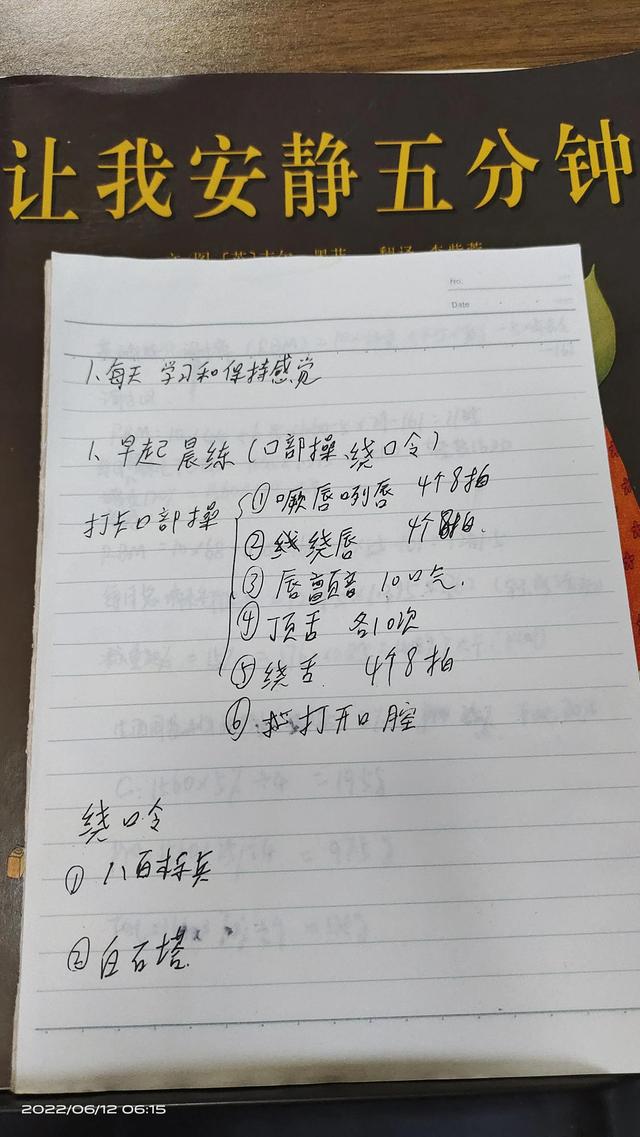 让我安静五分钟
No.
Date
1. 每天 学习和保持感觉
1. 早起晨练(口部操、绕口令)
打卡口部操
① 噘唇咧唇 4个8拍
② 绕唇 4个8拍.
③ 唇颤音 10口气.
④ 顶舌 各10次
⑤ 绕舌. 4个8拍
⑥. 打开口腔
绕口令
① 八百标兵
② 白石塔.
2022/06/12 06:15